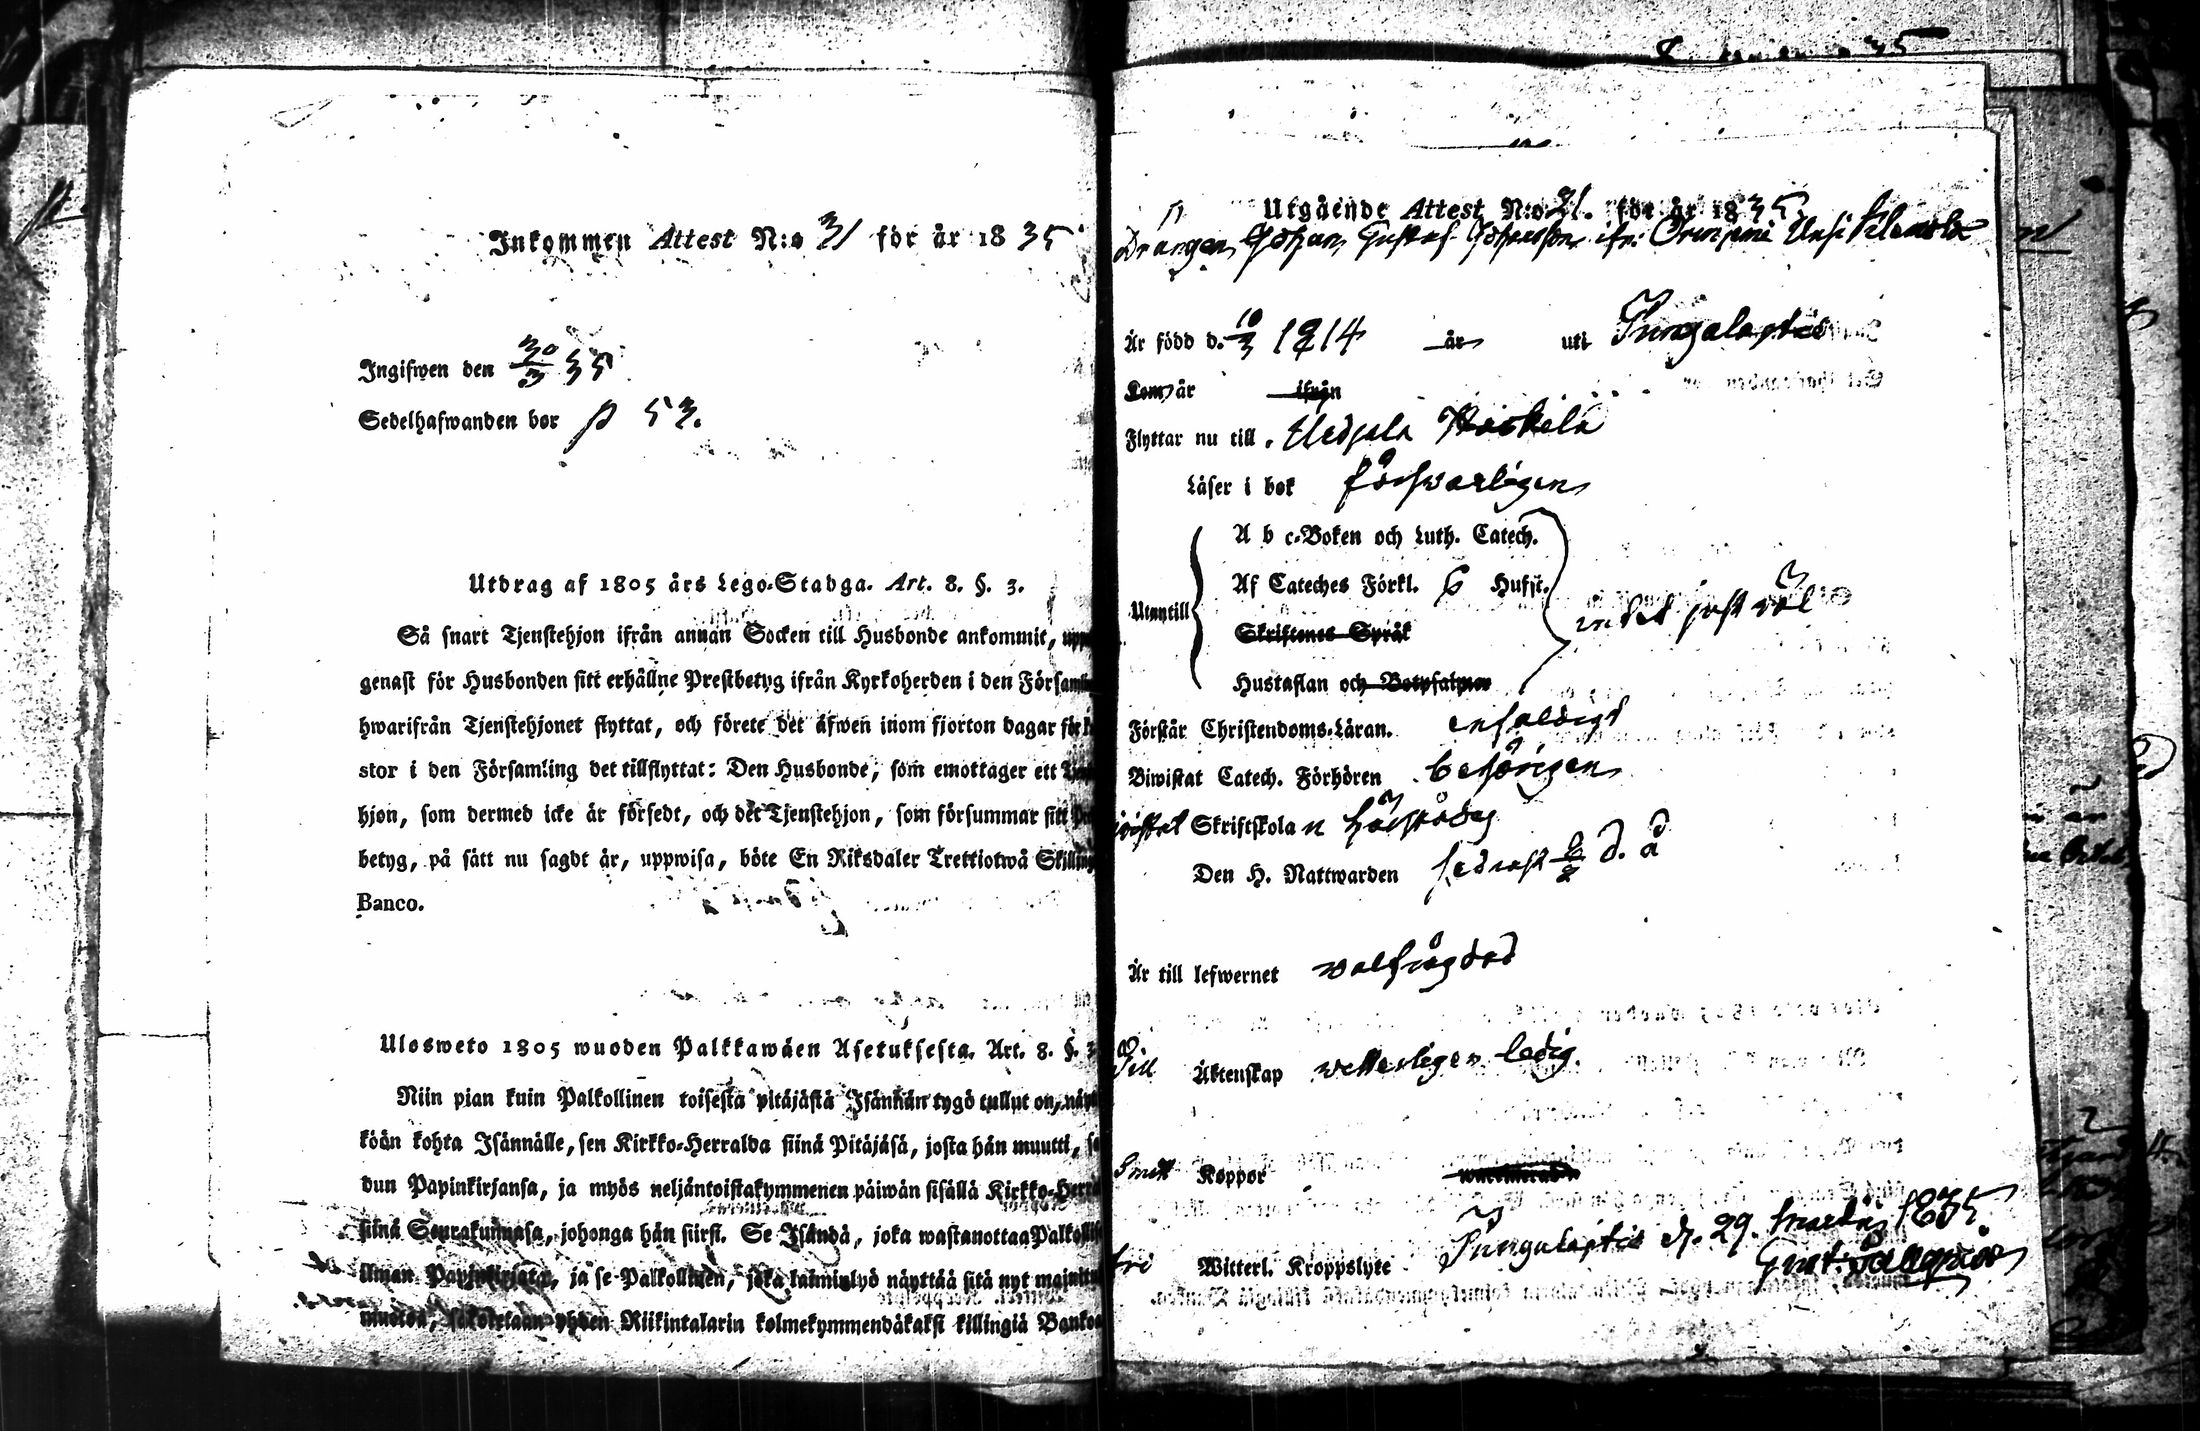 Inkommen Attest N:o 31 för år 1835
Ingifwen den 30/3 35
Sedelhafwanden bor p 53.
Utdrag af 1805 års Lego-Stadga. Art. 8. §. 3.
Så snart Tjenstehjon ifrån annan Socken till Husbonde ankommit,
genast för Husbonden sitt erhållne Prestbetyg ifrån Kyrkoherden i den
hwarifrån Tjenstehjonet flyttat, och förete det äfwen inom fjorton dagar för
stor i den Församling det tillflyttat: Den Husbonde, som emottager ett
hjon, som dermed icke är försedt, och det Tjenstehjon, som försummar sitt
betyg, på sätt nu sagdt är, uppwisa, böte En Riksdaler Trettiotwå
Banco.
Ulosweto 1805 wuoden Palkkawäen Asetuksesta. Art. 8. §. 3
Niin pian kuin Palkollinen toisesta pitäjästä Isännän tygö tullut on,
köön kohta Isännälle, sen Kirkko-Herralda siinä Pitäjäsä, josta hän muutti,
dun Papinkirjansa, ja myös neljäntoistakymmenen päiwän sisällä
siinä Seurakunnasa, johonga hän siirsi. Se Isändä, joka wastanottaa
ilman Papinkirjata, ja se Palkollinen, joka laiminlyö näyttää sitä nyt
muoton, sakotetaan yhden Riikintalarin kolmekymmendäkaksi killingiä
Utgående Attest N:o 31. för år 1835
Drängen Johan Gustaf Johansson ifr. Orinpini Uusi Klemola
Är född d. 10/3 1814 år uti Pungalaitio
Kom år ifrån
Flyttar nu till Uedjala Koskela
Läser i bok försvarligen
Utantill
A b c-Boken och Luth. Catech.
Af Cateches Förkl. 6 Hufst.
Skriftenes Språk
Hustaflan och Botpsalmer
just väl
Förstår Christendoms-Läran. enfaldigt
Biwistat Catech. Förhören behörigen
Skriftskolan
Den H. Nattwarden sednast d. å
Är till lefwernet wälfrägdad
Till Äktenskap vetterligen ledig.
Smitt Koppor
fri Witterl. Kroppslyte
Pungalaitio d. 29. Martii 1835.
Gust: